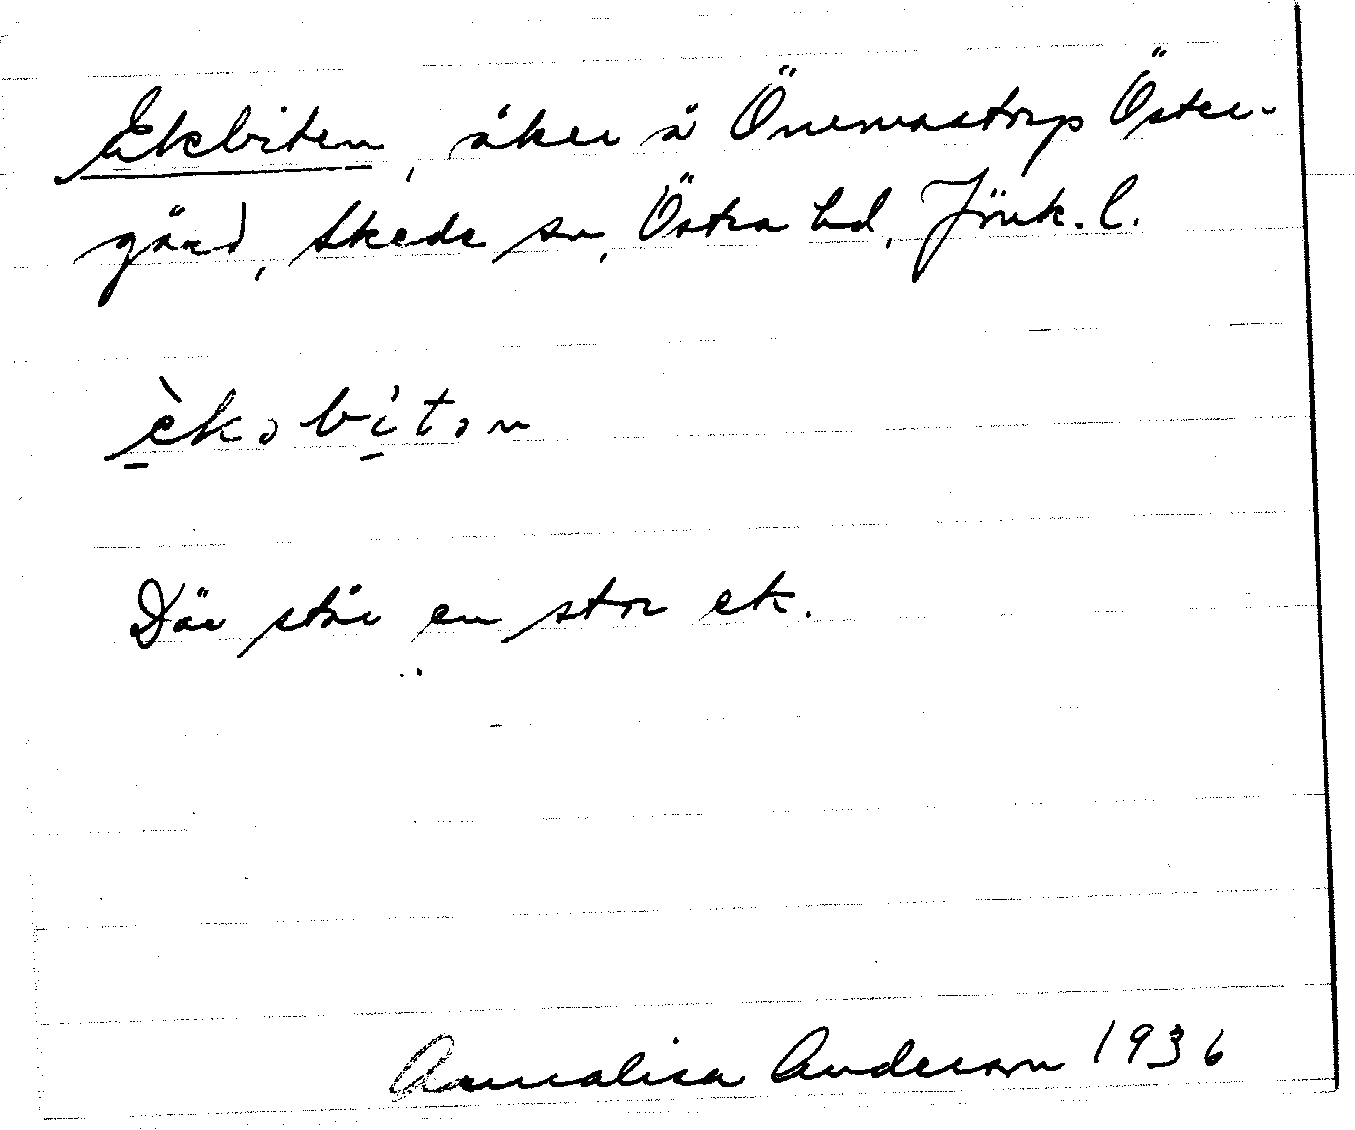 Ekbiten, åker å Önnarstorp Öster-
gård, Skede sn, Östra hd, Jönk. l.
èkəbi̇̀tən
Där står en stor ek.
Annalisa Anderson 1936